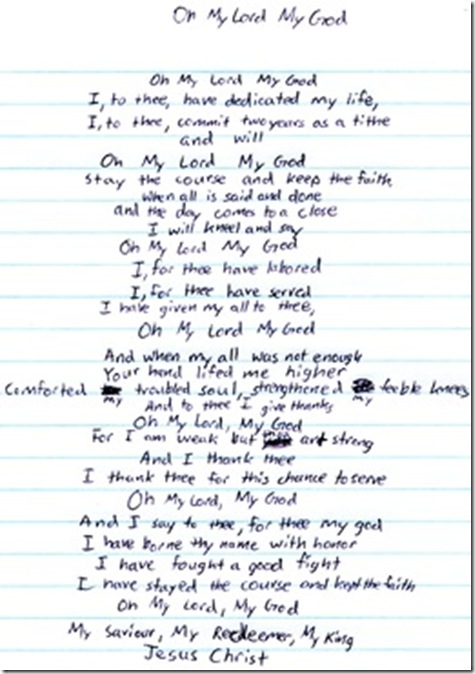 Oh My Lord My God
Oh My Lord My God
I, to thee, have dedicated my life,
I, to thee, commit two years as a tithe
and will
Oh My Lord My God
Stay the course and keep the faith
when all is said and done
and the day comes to a close
I will kneel and say
Oh My Lord My God
I, for thee have labored
I, for thee have served
I have given my all to thee,
Oh My Lord My God
And when my all was not enough
Your hand lifed me higher
Comforted my troubled soul, strengthened my feeble knees
And to thee I give thanks
Oh My Lord, My God
For I am weak but art strong
And I thank thee
I thank thee for this chance to serve
Oh My Lord, My God
And I say to thee, for thee my god
I have borne thy name with honor
I have fought a good fight
I have stayed the course and kept the faith
Oh My Lord, My God
My Saviour, My Redeemer, My King
Jesus Christ